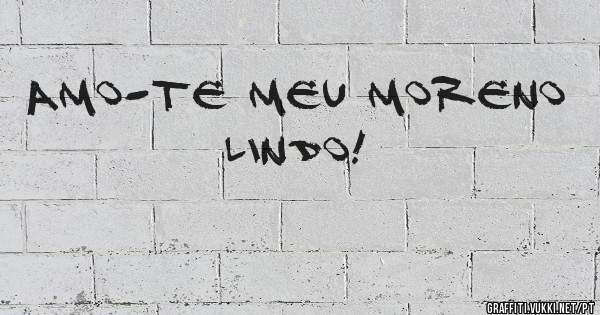 AMO-TE MEU MORENO
LINDO!
GRAFFITI.YUKKI.NET/PT